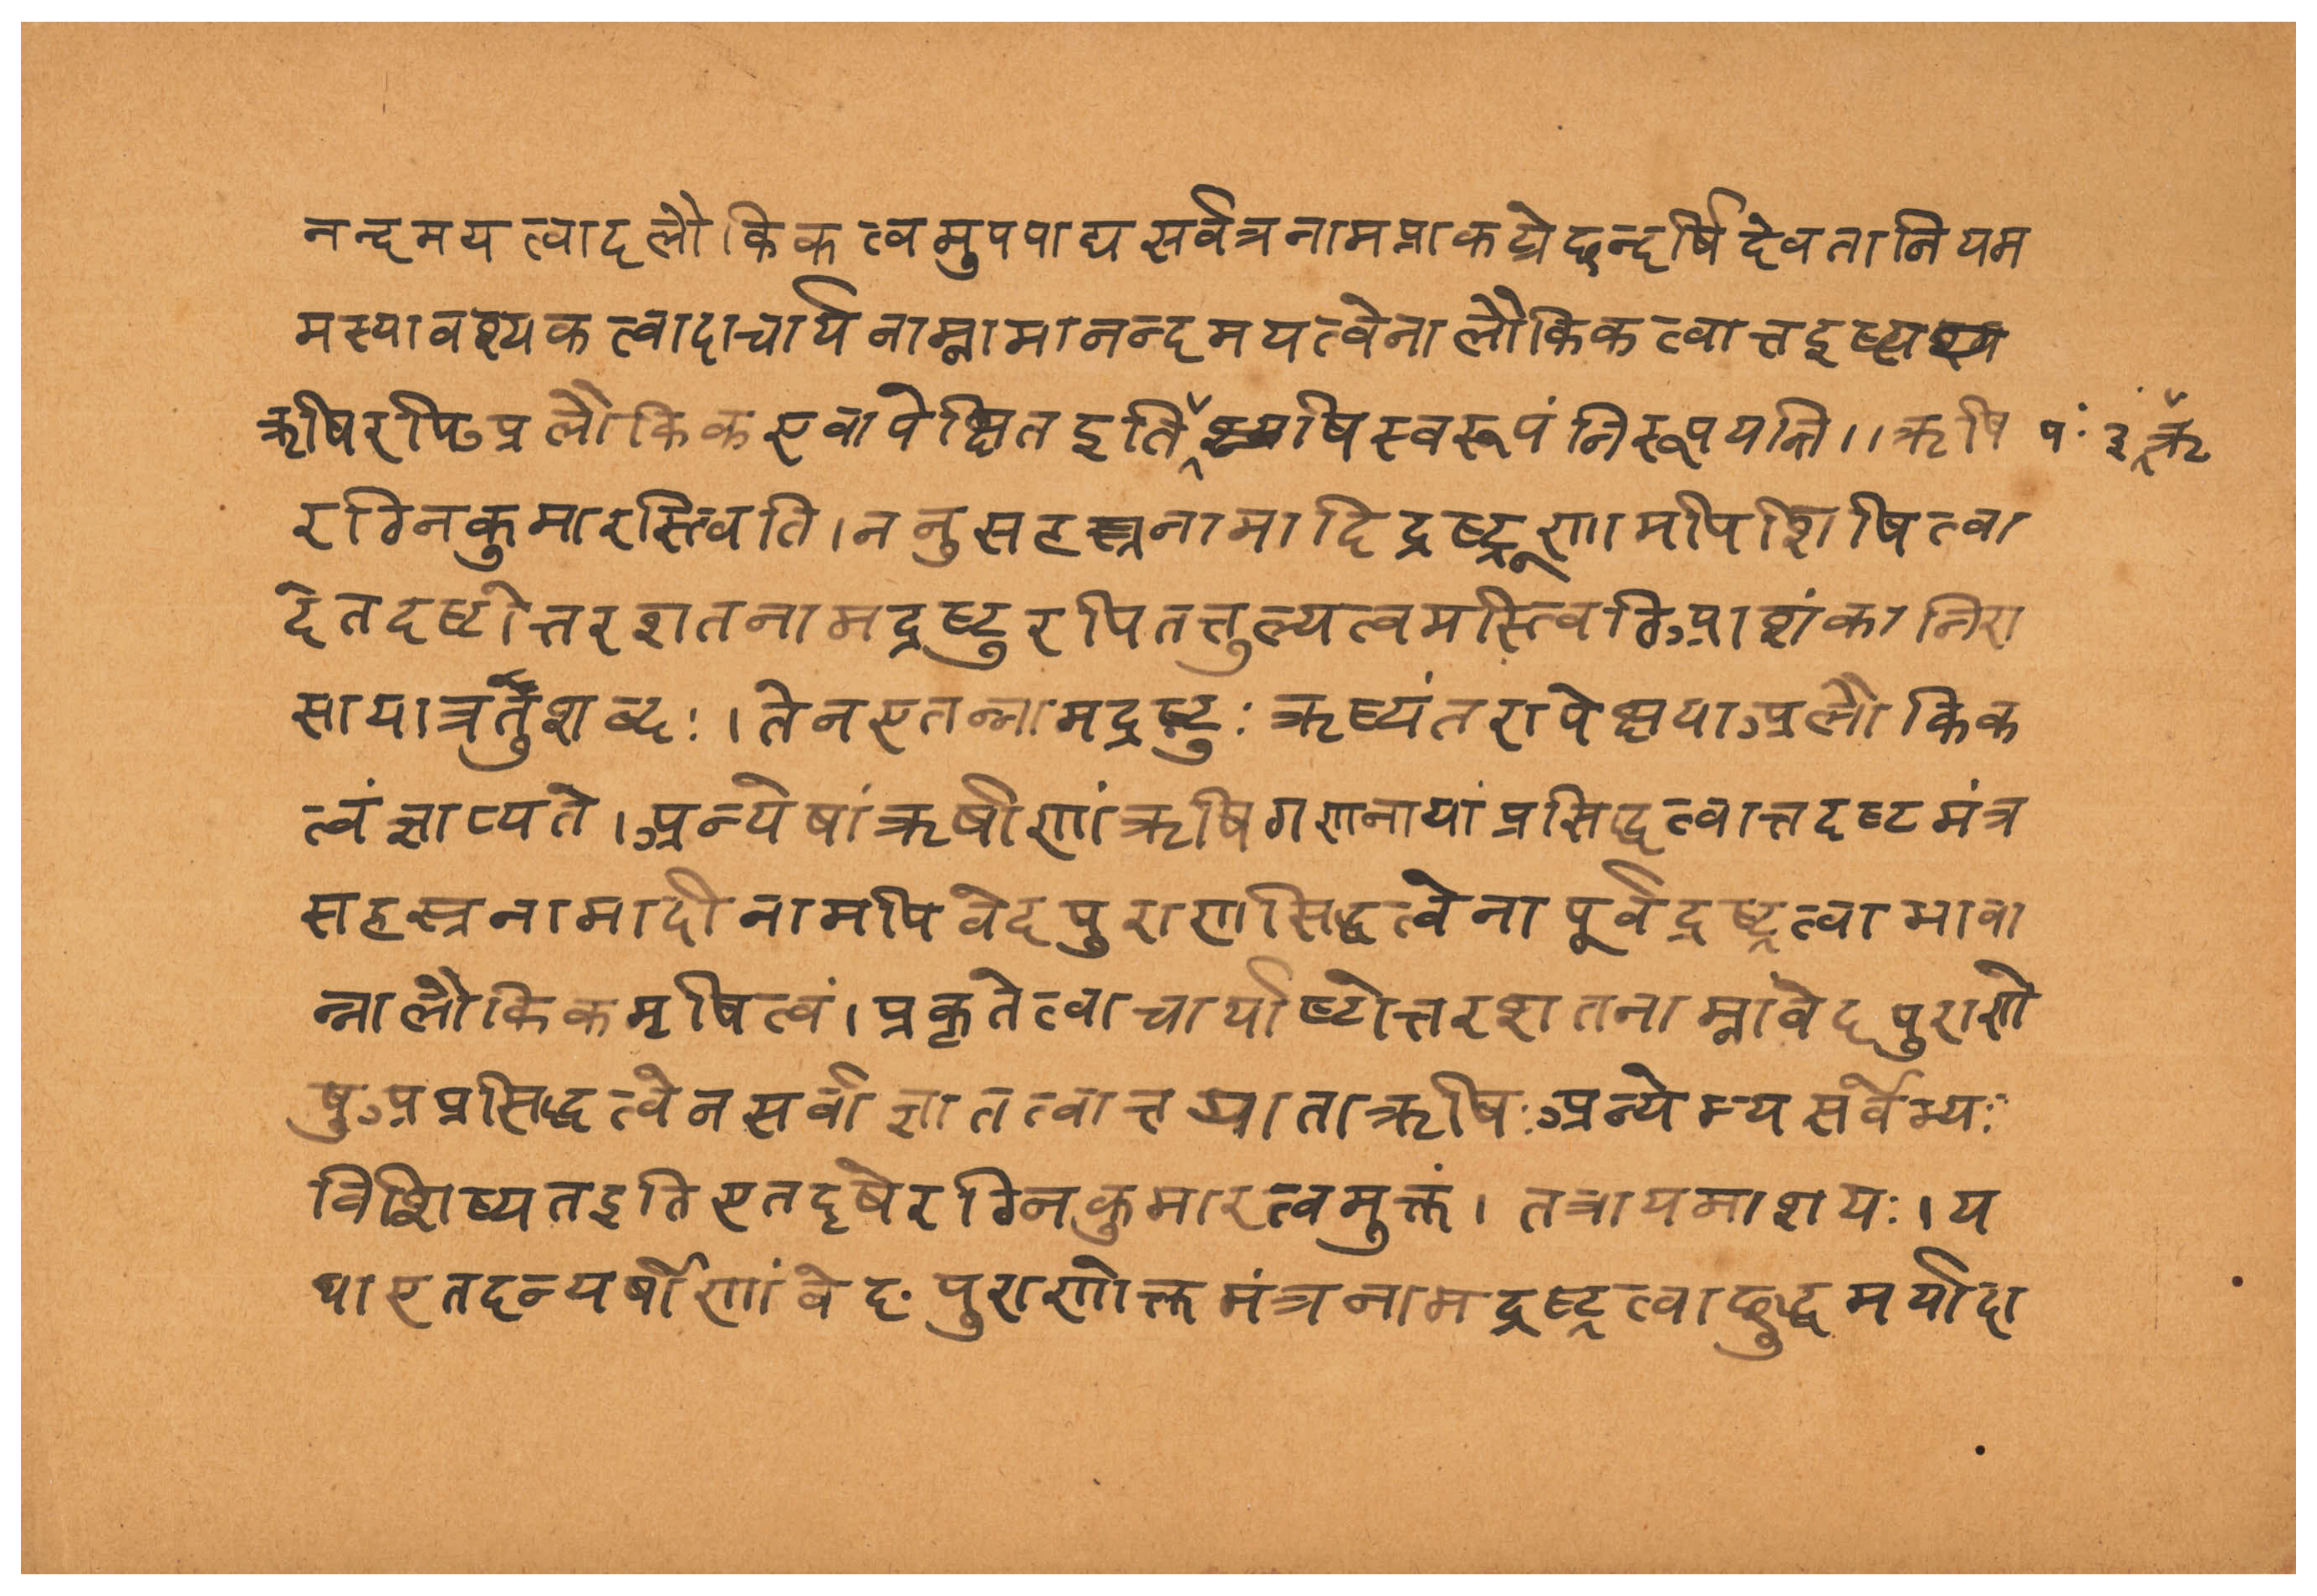 नन्दमयत्वादलौकिकत्वमुपपाद्य सर्वत्र नामप्राकट्ये छन्दर्षिदेवतानियम
मस्यावश्यकत्वादाचार्यनाम्नामानन्दमयत्वेनालौकिकत्वात्तद्द्रष्टा
ऋषिरपि अलौकिक एवापेक्षित इति षिस्वरूपं निरूपयन्ति ।। ऋषि
पं. ३ ऋ
रग्निकुमारस्त्विति । ननु सहस्रनामादिद्रष्ट्रूणामपि शिषित्वा
देतदष्टोत्तरशतनामद्रष्टुरपि तत्तुल्यत्वमस्त्विति आशंकानिरा
सायात्र तुशब्दः । तेन एतन्नामद्रष्टुः ऋष्यंतरापेक्षया अलौकिक
त्वं ज्ञाप्यते । अन्येषां ऋषीणां ऋषिगणनायां प्रसिद्धत्वात्तदष्टमंत्र
सहस्रनामादीनामपि वेदपुराणसिद्धत्वेनापूर्वद्रष्ट्रत्वाभावा
न्नालौकिकमृषित्वं । प्रकृते त्वाचार्याष्टोत्तरशतनाम्नां वेदपुराणे
षु अप्रसिद्धत्वेन सर्वाज्ञातत्वात्त ऋषिः अन्येभ्य सर्वेभ्यः
विशिष्यत इति एतदृषेरग्निकुमारत्वमुक्तं । तत्रायमाशयः । य
था एतदन्यर्षीणां वेदपुराणोक्तमंत्रनामद्रष्ट्रत्वाच्छुद्धमर्यादा